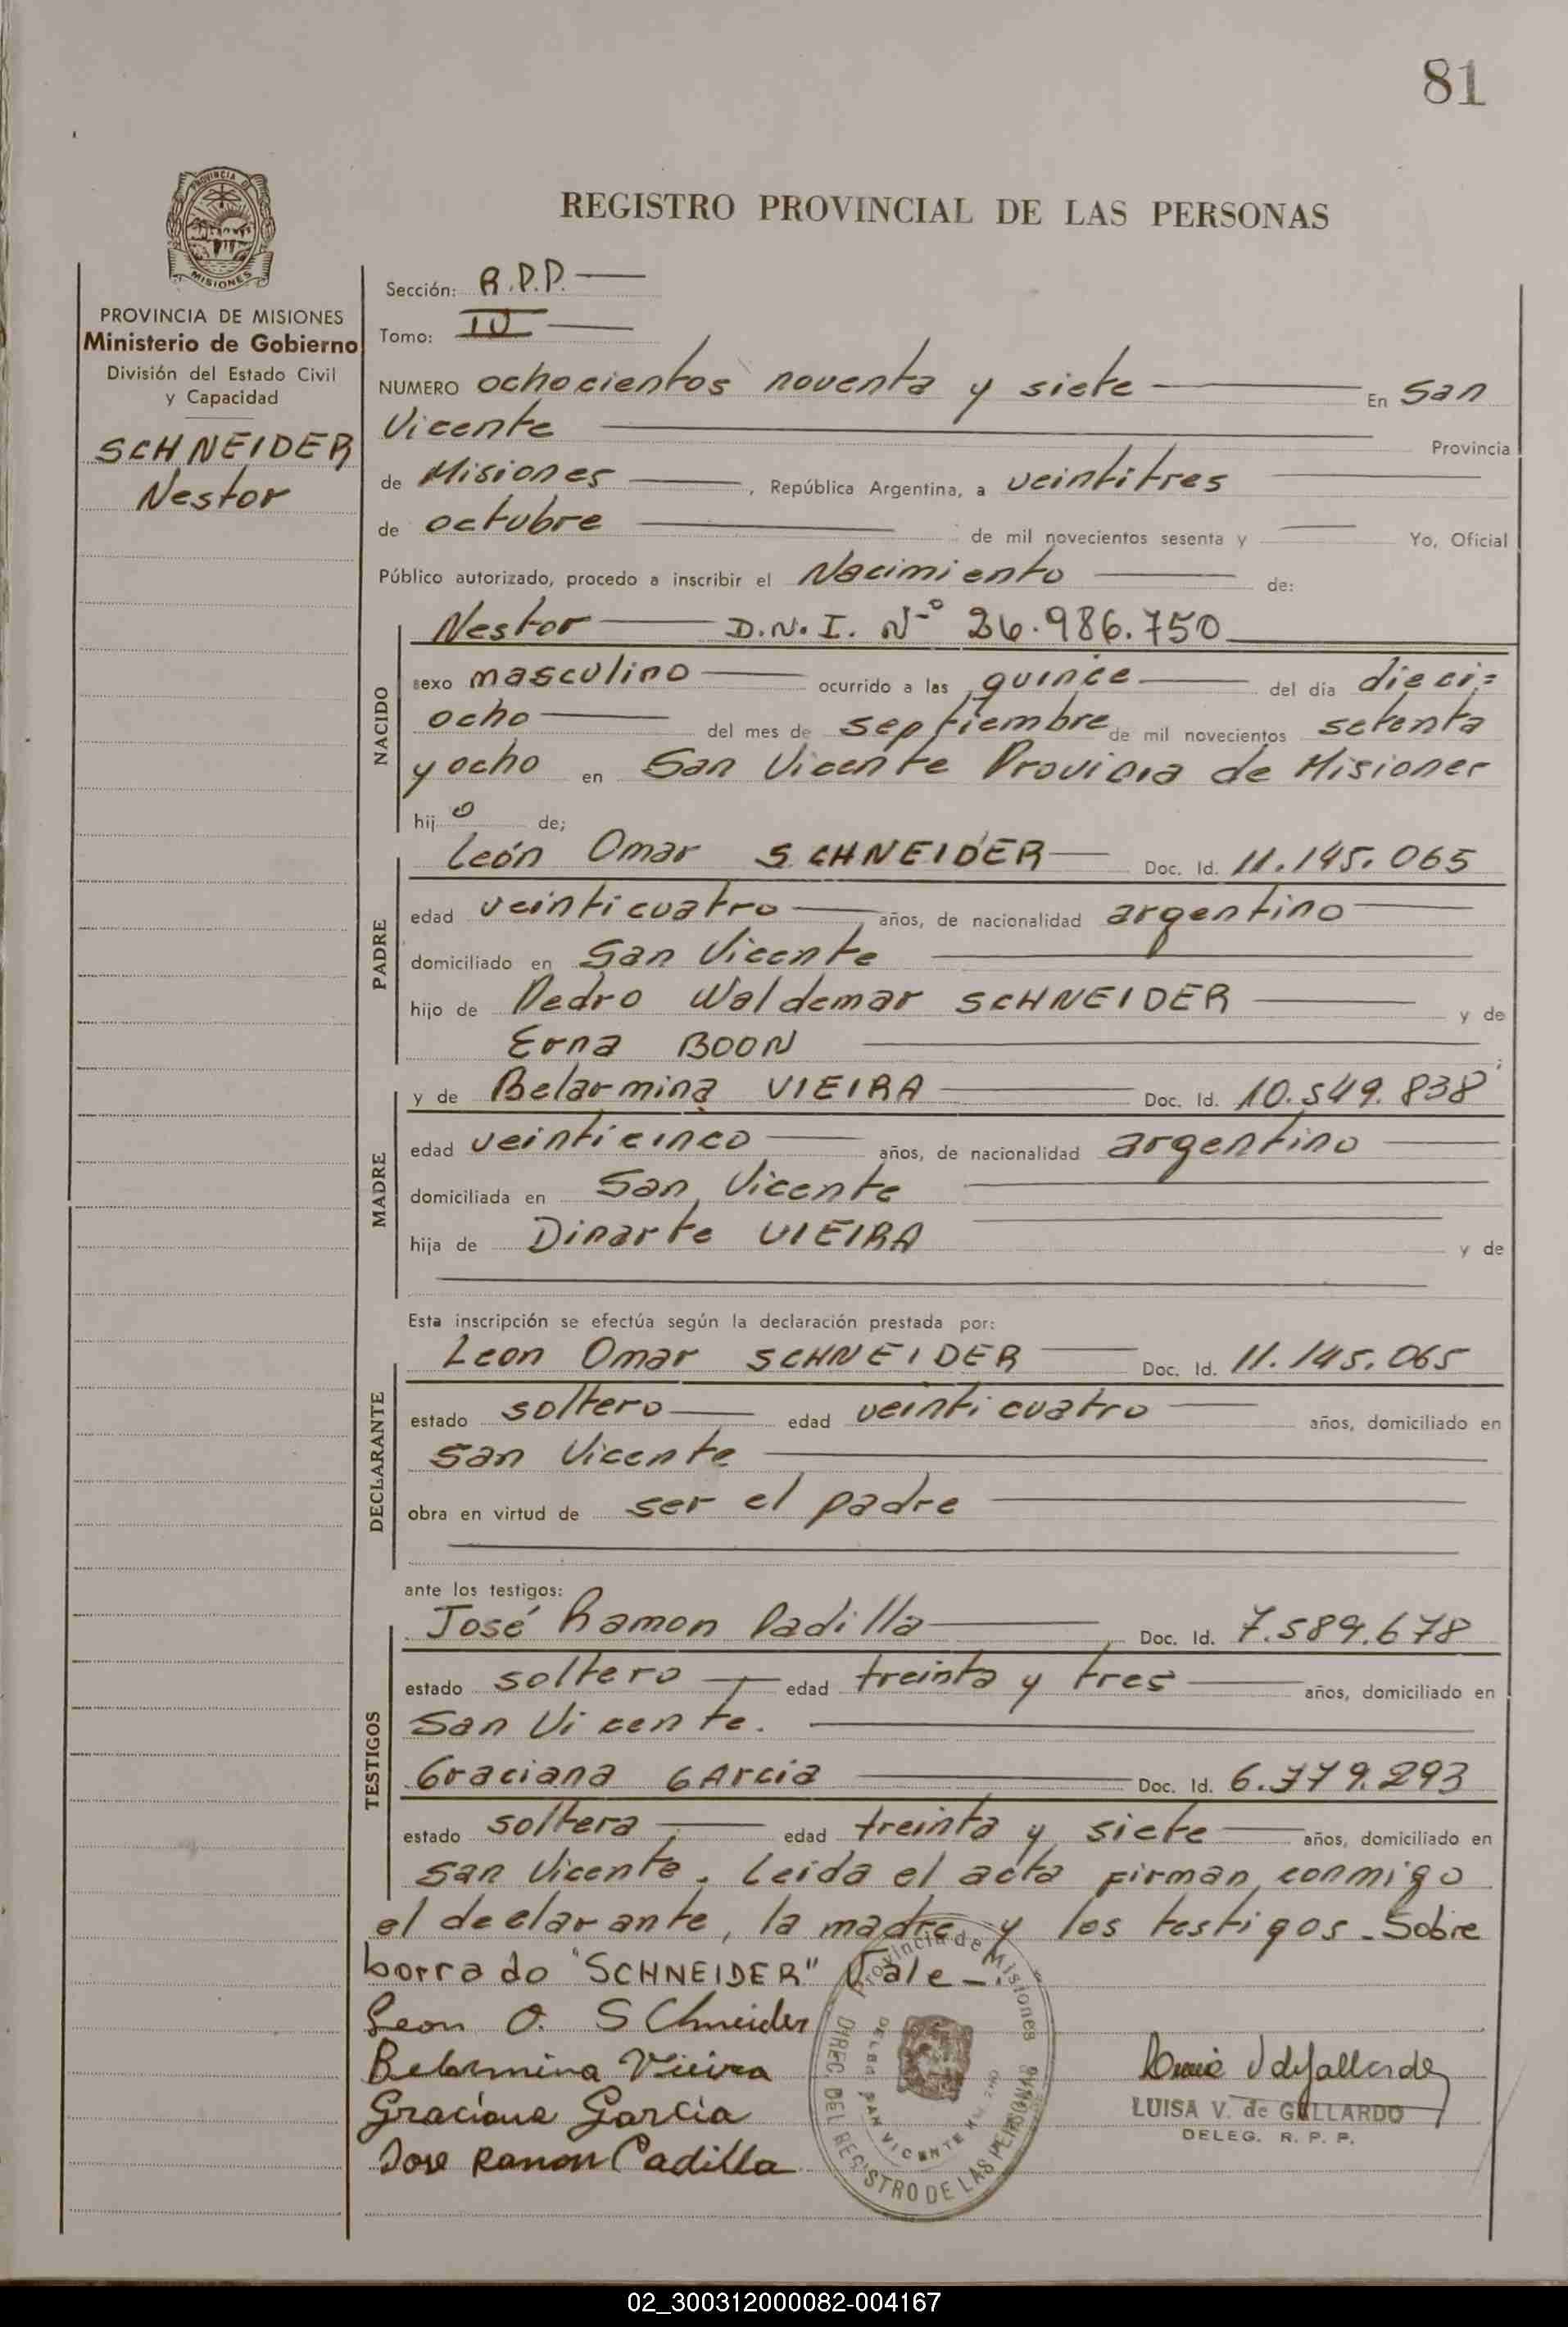 81
PROVINCIA DE
MISIONES
REGISTRO PROVINCIAL DE LAS PERSONAS
PROVINCIA DE MISIONES
Ministerio de Gobierno
División del Estado Civil
y Capacidad
SCHNEIDER
Nestor
Sección: R.P.P.
Tomo: IV
NUMERO ochocientos noventa y siete En San
Vicente Provincia
de Misiones, República Argentina, a veintitres
de octubre de mil novecientos sesenta y Yo, Oficial
Público autorizado, procedo a inscribir el Nacimiento de:
NACIDO
Nestor D.N.I. Nº 26.986.750
sexo masculino ocurrido a las quince del día dieci=
ocho del mes de septiembre de mil novecientos setenta
y ocho en San Vicente Provicia de Misiones
hijo de;
PADRE
León Omar SCHNEIDER Doc. Id. 11.145.065
edad veinticuatro años, de nacionalidad argentino
domiciliado en San Vicente
hijo de Pedro Waldemar SCHNEIDER y de
Erna BOON
MADRE
y de Belarmina VIEIRA Doc. Id. 10.549.838
edad veinticinco años, de nacionalidad argentino
domiciliada en San Vicente
hija de Dinarte VIEIRA y de
Esta inscripción se efectúa según la declaración prestada por:
DECLARANTE
Leon Omar SCHNEIDER Doc. Id. 11.145.065
estado soltero edad veinticuatro años, domiciliado en
San Vicente
obra en virtud de ser el padre
ante los testigos:
TESTIGOS
José Ramon Padilla Doc. Id. 7.589.678
estado soltero edad treinta y tres años, domiciliado en
San Vicente.
Graciana GArcia Doc. Id. 6.779.293
estado soltera edad treinta y siete años, domiciliado en
San Vicente. Leida el acta firman conmigo
el declarante, la madre y los testigos. Sobre
borrado "SCHNEIDER" Vale-.
Leon O. SChneider
Belarmina Vieira
Graciana Garcia
Jose Ramon Padilla
Provincia de Misiones
DIREC. DEL REGISTRO DE LAS PERSONAS
SAN VICENTE
LUISA V. de GALLARDO
DELEG. R. P. P.
02_300312000082-004167